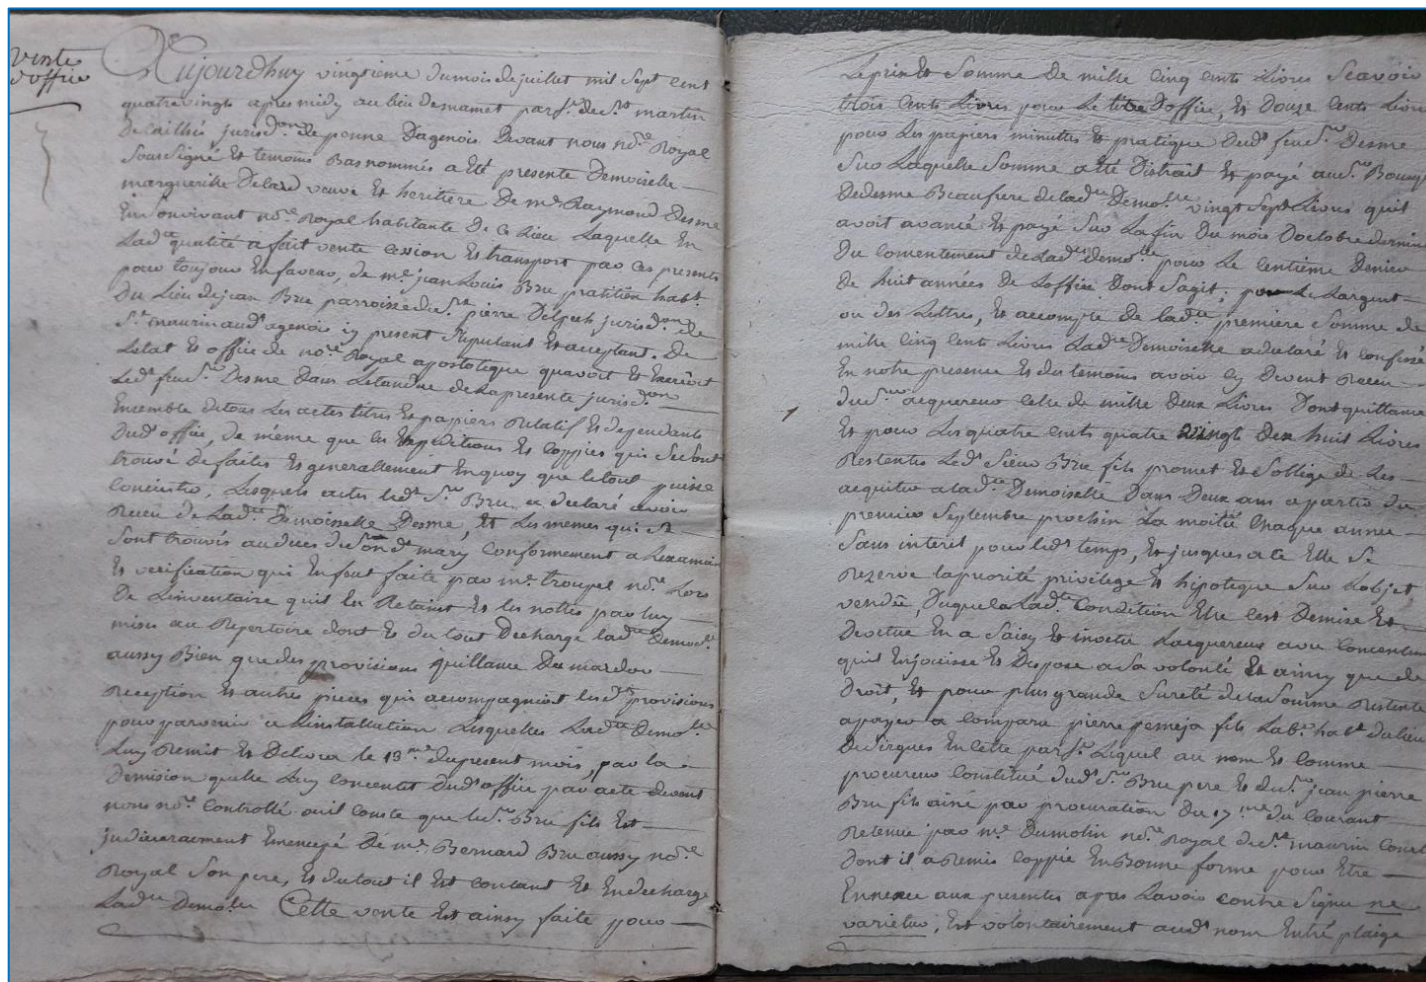 vente
d'office
Aujourdhuy vingtieme du mois de juillet mil sept cent
quatrevingts apres midy au lieu de mamet par.se de St martin
de caillhés jurisd.on de penne D'agenois Devant nous no.re Royal
sous signé Et temoins Bas nommés a Eté presente Demoiselle
marguerithe Delard veuve Et heritiere De me Raymond Desme
En son vivant no.re Royal habitante De Ce Lieu Laquelle En
Lad.te qualité a fait vente cession Et transport par ces presents
pour toujour En faveur, de me jean Louis Bru pratitien hab.t
Du Lieu de jean Bru parroisse de St pierre Delpech jurisd.on de
St maurin aud. agenois iy present stipulant Et acceptant. De
Letat Et office de no.re Royal apostotique quavoit Et Exercoit
Led. feu S.r Desme Dans Letandue de La presente jurisd.on
Ensemble de tous Les actes titres Et papiers Relatif Et dependants
Dud. office, de même que les Expeditions Et Coppies qui se sont
trouvé De faites Et generallement En quoy que le tout puisse
Concister, Lesquels actes led. S.r Bru a declaré avoir
Receu de Lad.te Demoiselle Desme, Et Les memes qui Se
Sont trouvés au deces de Son d. mary Conformement a Lexamain
Et verification qui En feut faite par me troupel no.re Lors
De Linventaire quil En Retaint Et les nottes par luy
mises au Repertoire dont Et du tout Decharge lad.te demo.lle
aussy Bien que des provisions quillance Du mardor
Reception Et autres pieces qui accompagniot les d. provisions
pour parvenir a Linstallation Lesquelles Lad.te Demo.lle
Luy Remit Et Delivra le 13me du present mois, par la
Demision quelle Luy Concentit Dud. office par acte devant
nous no.re Controllé ou il Conste que le S.r Bru fils Est
judicierement Emencipé De me Bernard Bru aussy no.re
Royal Son pere, Et du tout il Est Contant Et En decharge
Lad.te Demo.lle Cette vente Est ainsy faite pour
Le prix Et Somme De mille Cinq Cents Livres Scavoir
trois Cents Livres pour Le titre D'office, Et Douze Cents Livres
pour Les papiers minuttes Et pratique Dud. feu S.r Desme
Sur Laquelle Somme a Eté Distrait Et payé au S.r
Dedesme Beaufrere de lad.te Demo.lle vingt Sept Livres quil
avoit avancé Et payé Sur La fin Du mois Doctobre dernier
Du Consentement de Lad.te demo.lle pour Le Centième Denier
De huit années de Loffice Dont Sagit; Largent
ou des Lettres, Et accompte de lad.te premiere Somme de
mille Cinq Cents Livres Lad.te Demoiselle a declaré Et Confessé
En notre presence Et des temoins avoir Cy Devent Receu
du S.r acquereur Celle de mille Deux Livres Dont quittance
Et pour Les quatre Cents quatre vingts Dix huit Livres
Restentes Led. Sieur Bru fils promet Et Soblige de Les
acquitter a lad.te Demoiselle Dans Deux ans a partir du
premier Septembre prochin La moitié Chaque année
Sans interet pour led. temps, Et jusques a te Elle Se
Rezerve la priorité privilege Et hipoteque Sur Lobjet
vendeu, Duquel a Lad.te Condition Elle Cest Demise Et
Devetue En a Saisy Et invetu Lacquereur avec Concentem
quil En jouisse Et Dispose a Sa volonté Et ainsy que de
Droit, Et pour plus grande Sureté de la Somme Restente
a payer a Comparu pierre pemeja fils Lab.r hab.t du lieu
De virgues En Cette par.se Lequel au nom Et Comme
procureur Constitué dud. S.r Bru pere Et du S.r jean pierre
Bru fils ainé par procuration Du 17me du Courant
Retenue par me Dumolin no.re Royal de St maurin Contl
dont il a Remis Coppie En Bonne forme pour Etre
Ennexée aux presentes apres Lavoir Contre Signée ne
varietur, Est volontairement aud. nom Entré plaige